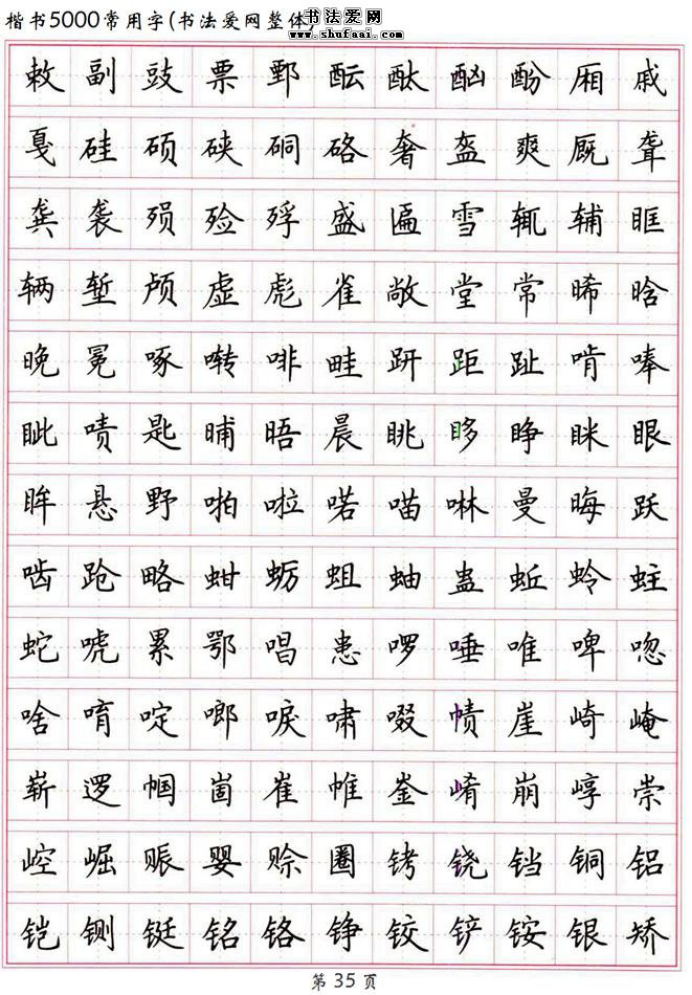 楷书5000常用字(书法爱网整体)
书法爱网
www.shufaai.com
敕副豉票鄄酝酞酗酚厢戚
戛硅硕硖硐硌奢盔爽厩聋
龚袭殒殓殍盛匾雪辄辅眶
辆堑颅虚彪雀敞堂常晞晗
晚冕啄啭啡畦趼距趾啃唪
眦啧匙晡晤晨眺眵睁眯眼
眸悬野啪啦喏喵啉曼晦跃
啮跄略蚶蛎蛆蚰蛊蚯蛉蛀
蛇唬累鄂唱患啰唾唯啤唿
啥唷啶啷唳啸啜帻崖崎崦
崭逻帼崮崔帷崟崤崩崞崇
崆崛赈婴赊圈铐铙铛铜铝
铠铡铤铭铬铮铰铲铵银矫
第35页